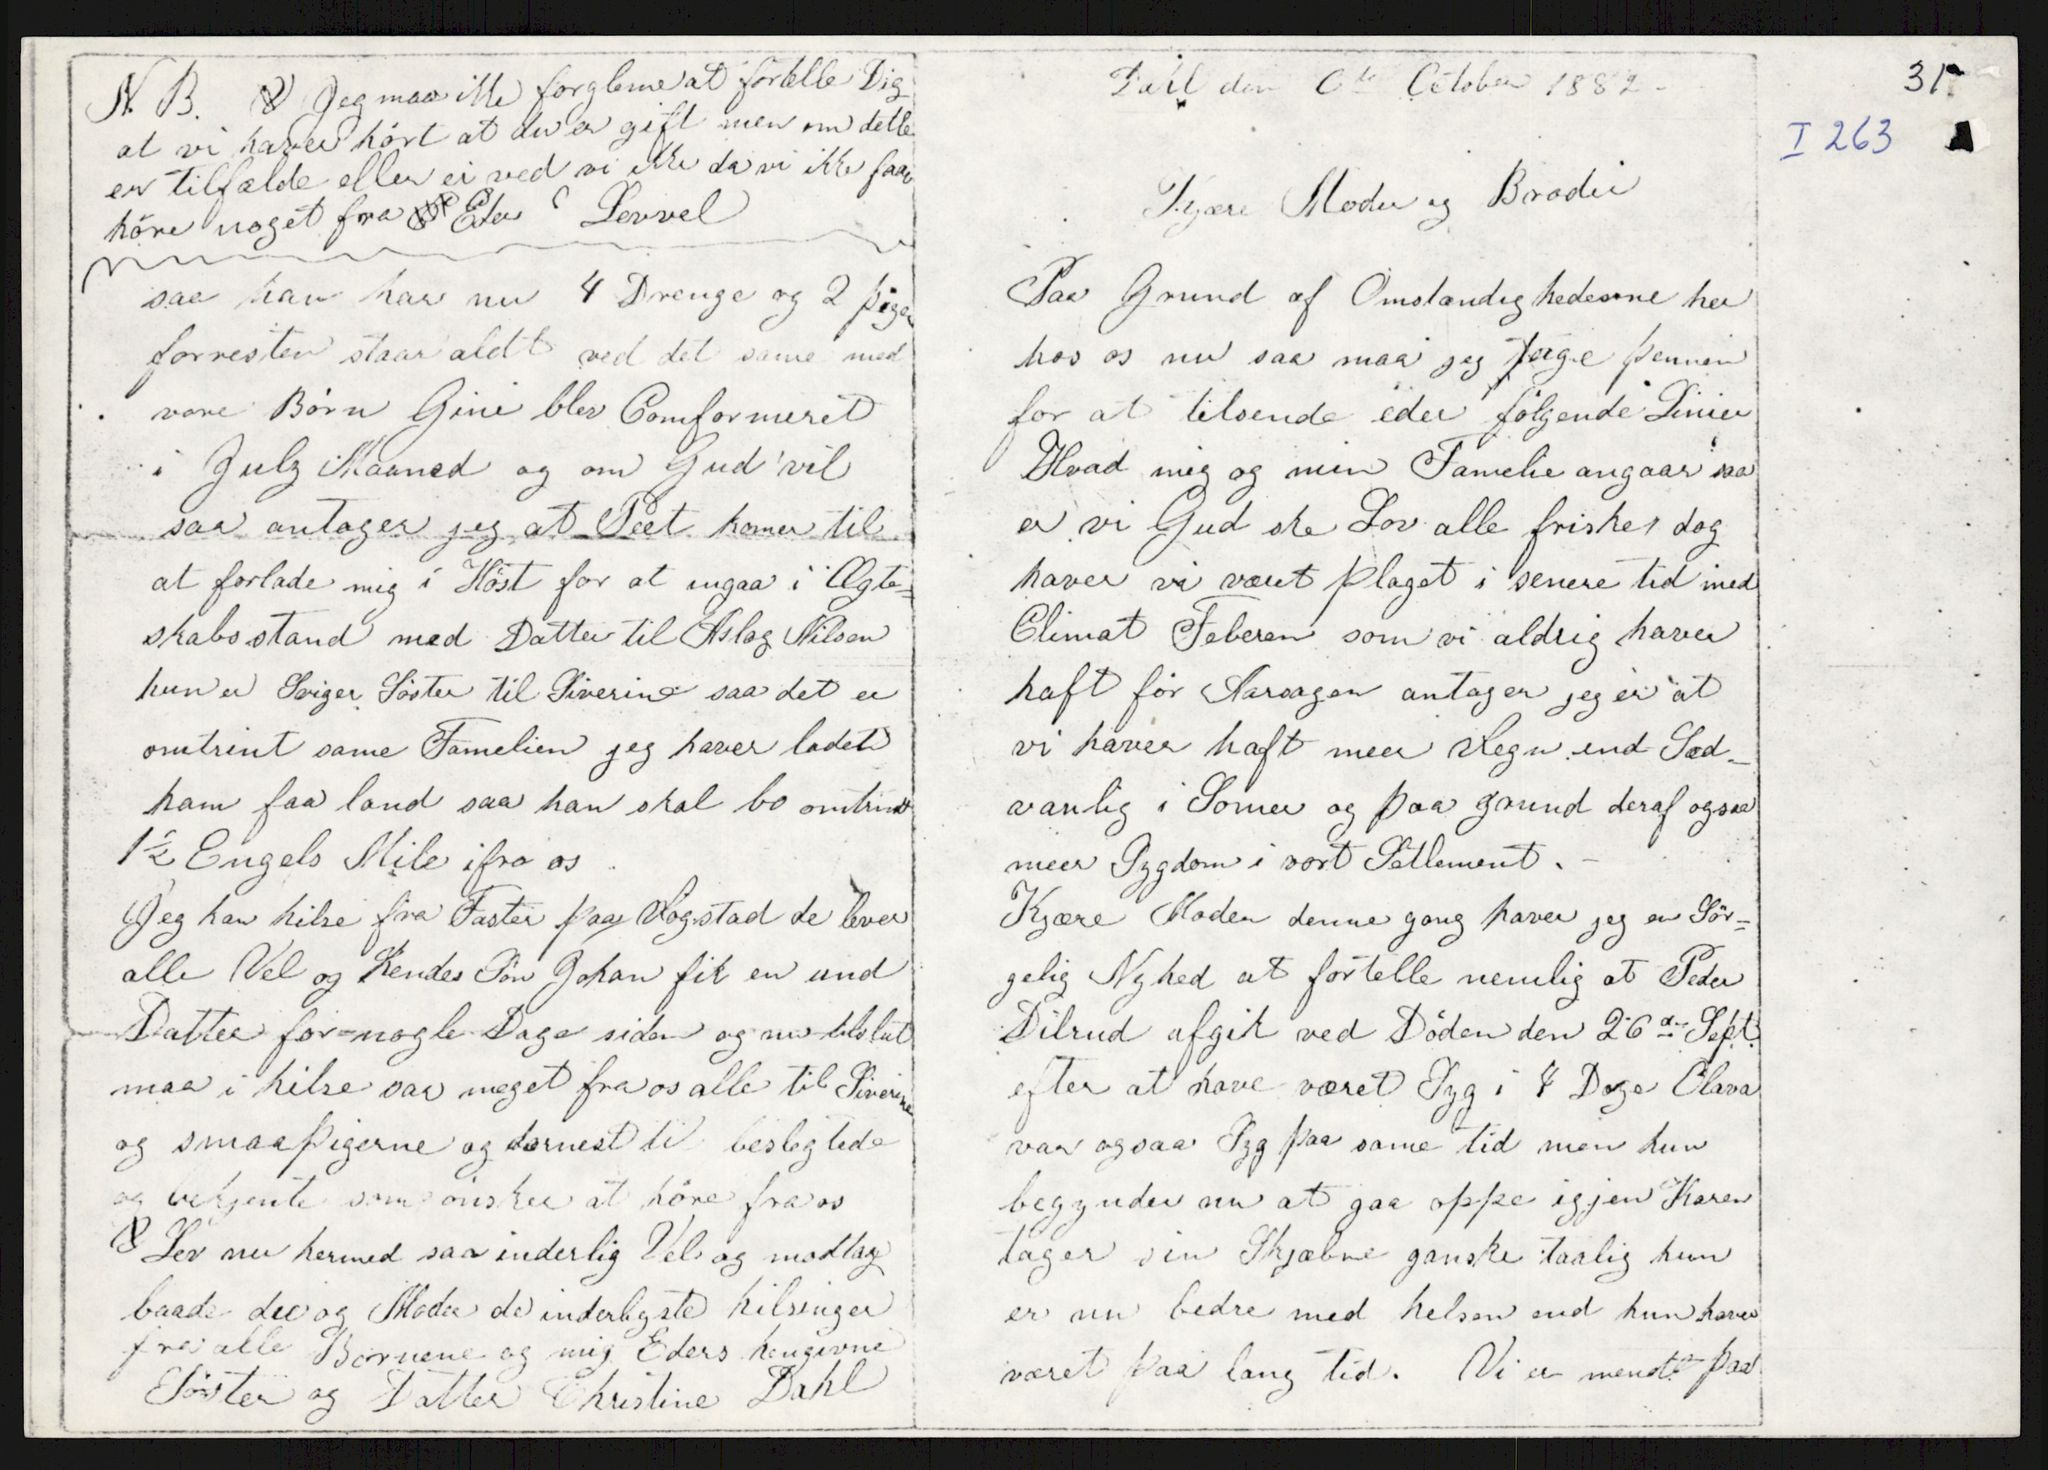 31
I 263
den 6te October 1882 -
Kjære Moder og Broder
Paa Grund af Omstændighederne her
hos os nu saa maa jeg tage pennen
for at tilsende eder følgende Linier
Hvad mig og min Famelie angaar saa
er vi Gud ske Lov alle friske, dog
haver vi været plaget i senere tid med
Climat Feberen som vi aldrig haver
haft før Aarsagen antager jeg er at
vi haver haft meer Regn end Sæd-
vanlig i Somer og paa grund deraf ogsaa
meer Sygdom i vort Setlement. -
Kjære Moder denne gang haver jeg en Sør-
gelig Nyhed at fortelle nemlig at Peder
Dilrud afgik ved Døden den 26de Sept.
efter at have været Syg i 4 Dage Olava
var ogsaa Syg paa same tid men hun
begynder nu at gaa oppe igjen Karen
tager sin Skjæbne ganske taalig hun
er nu bedre med helsen end hun haver
været paa lang tid. Vi er paa
N. B. Jeg maa ikke forgleme at fortelle Dig
at vi haver hørt at du er gift men om dette
er tilfælde eller ei ved vi ikke da vi ikke faar
høre noget fra Eder Levvel
saa han har nu 4 Drenge og 2 piger
forresten staar aldt ved det same med
vore Børn Gine blev Comformeret
i July Maaned og om Gud vil
saa antager jeg at Peet komer til
at forlade mig i Høst for at ingaa i Ægte-
skabsstand med Datter til Aslag Nilsen
hun er Sviger Søster til Siverine saa det er
omtrint same Famelien jeg haver ladet
ham faa land saa han skal bo omtrint
1½ Engels Mile ifra os
Jeg kan hilse fra Faster paa Rogstad de lever
alle Vel og Hendes Søn Johan fik en und
Datter for nogle Dage siden og nu tilslut
maa i hilse saa meget fra os alle til Siverine
og smaapigerne og dernest til beslegtede
og bekjente som ønsker at høre fra os
Lev nu hermed saa inderlig Vel og modtag
baade du og Moder de inderligste hilsinger
fra alle Børnene og mig Eders hengivne
Søster og Datter Christine Dahl